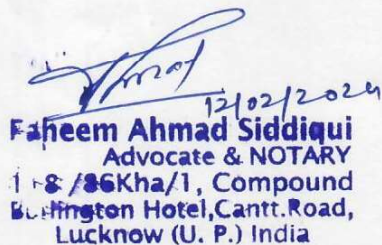 12/02/2024
Faheem Ahmad Siddiqui
Advocate & NOTARY
/86Kha/1, Compound
Burlington Hotel,Cantt.Road,
Lucknow (U. P.) India